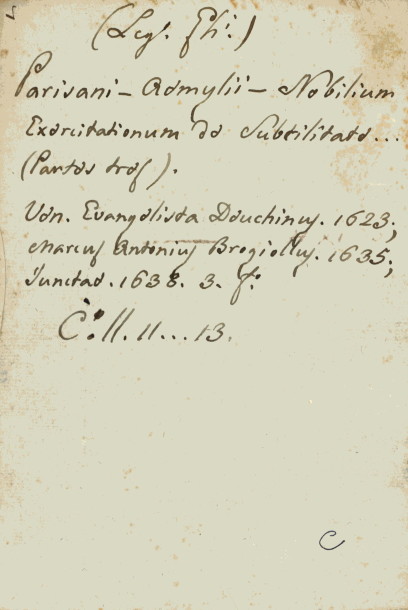 (Leg. fhi.)
Parisani – Aemylii – Nobilium
Exercitationum de Subtilitate...
(Partes tres).
Ven. Evangelista Deuchinus. 1623;
Marcus Antonius Brogiollus. 1635;
Juntae. 1638. 3. f.
C. ll. 11...13.
C